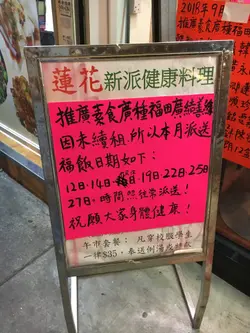 2018年9月
蓮花新派健康料理
推廣素食廣種福田廣結善緣
因未續租所以本月派送
福飯日期如下：
12日.14日 19日22日25日
27日，時間照常派送！
祝願大家身體健康！
午市套餐：凡穿校服學生
一律$35，奉送例湯